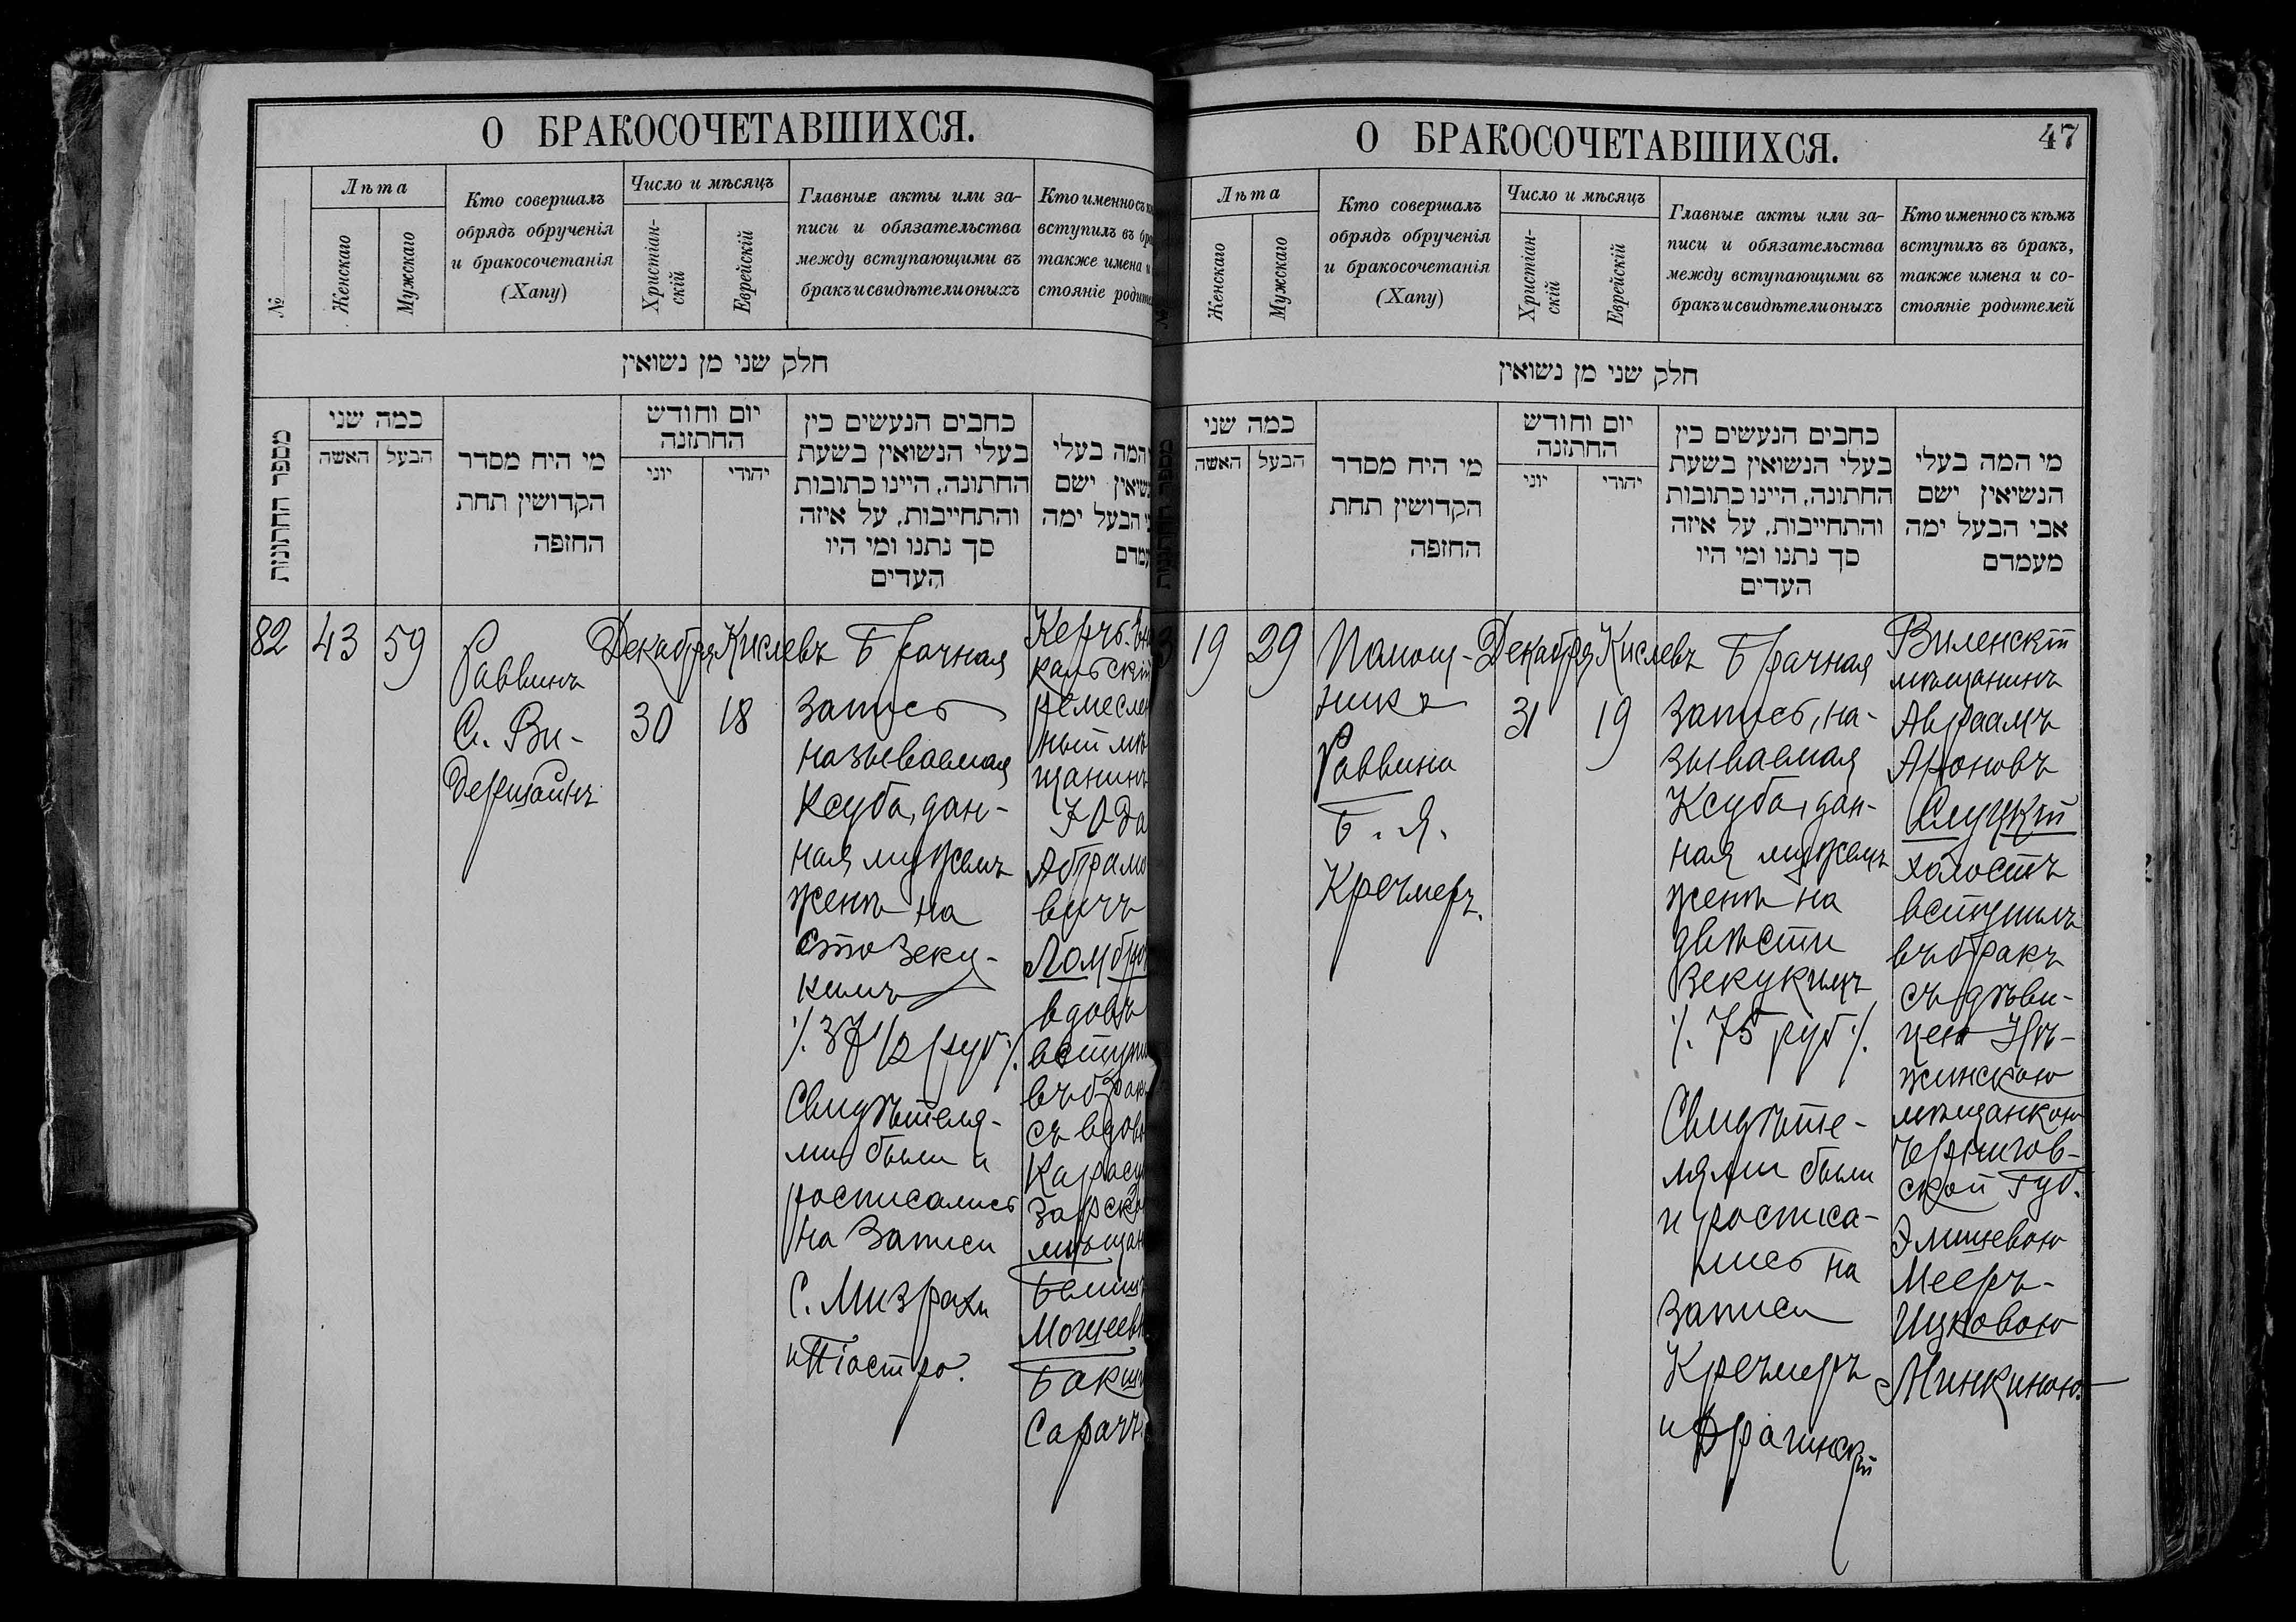 О БРАКОСОЧЕТАВШИХСЯ.
№
Лѣта
Женскаго
Мужскаго
Кто совершалъ
обрядъ обрученія
и бракосочетанія
(Хапу)
Число и мѣсяцъ
Христіан-
скій
Еврейскій
Главные акты или за-
писи и обязательства
между вступающими въ
бракъ и свидѣтели оныхъ
Кто именно съ
вступилъ въ
также имена и
стояніе
חלק שני מן נשואין
מספר החתונות
כמה שני
האשה
הבעל
מי היח מסדר
הקדושין תחת
החזפה
יום וחודש
החתזנה
יוני
יהודי
כחבים הנעשים כין
בעלי הנשואין בשעת
החתונה, היינו כתובות
והתחייבות, על איזה
סך נתנו ומי היו
העדים
המה בעלי
ישם
הבעל ימה
82
43
59
Раввинъ
С. Ви-
дерщайнъ
Декабря
30
Кислевъ
18
Брачная
запись
называемая
Ксуба, дан-
ная мужемъ
женѣ на
сто зеку-
кимъ
/. 37 1/2 руб /.
Свидѣтеля-
ми были и
росписались
на записи
С. Мизрахи
и Піостро.
Керчь-
ремеслен
ный мѣ
щанинъ
Юда
Абрамо
вичъ
вдовъ
вступи
въ брак
съ вдово
Карасу
Зарско
мѣщан
Мошеевн
О БРАКОСОЧЕТАВШИХСЯ.
47
Лѣта
Женскаго
Мужскаго
Кто совершалъ
обрядъ обрученія
и бракосочетанія
(Хапу)
Число и мѣсяцъ
Христіан-
скій
Еврейскій
Главные акты или за-
писи и обязательства
между вступающими въ
бракъ и свидѣтели оныхъ
Кто именно съ кѣмъ
вступилъ въ бракъ,
также имена и со-
стояніе родителей
חלק שני מן נשואין
כמה שני
האשה
הבעל
מי היח מסדר
הקדושין תחת
החזפה
יום וחודש
החתזנה
יוני
יהודי
כחבים הנעשים כין
בעלי הנשואין בשעת
החתונה, היינו כתובות
והתחייבות, על איזה
סך נתנו ומי היו
העדים
מי המה בעלי
הנשיאין ישם
אבי הבעל ימה
מעמדם
3
19
29
Помощ-
ника
Раввина
Б. Я.
Кречмеръ.
Декабря
31
Кислевъ
19
Брачная
запись, на-
зываемая
Ксуба, дан-
ная мужемъ
женѣ на
двѣсти
зекукимъ
/. 75 руб /.
Свидѣте-
лями были
и росписа-
лись на
записи
Кречмеръ
и Фрагинскій
Виленскій
мѣщанинъ
Авраамъ
Ароновъ
Слуцкій
холостъ
вступилъ
въ бракъ
съ дѣви-
цею Нѣ-
жинскою
мѣщанкою
Чернигов-
ской губ.
Элишевою
Мееръ-
Ицковою
Минкиною.